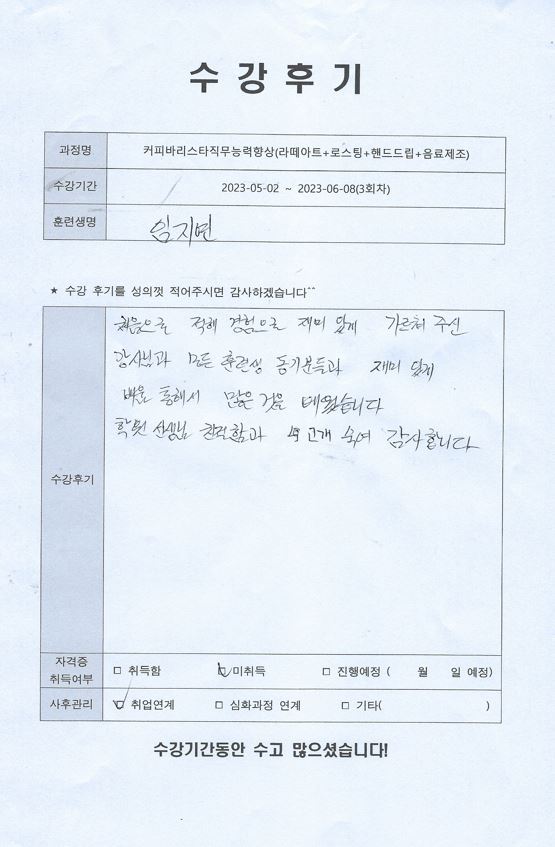 수강후기
과정명 커피바리스타직무능력향상(라떼아트+로스팅+핸드드립+음료제조)
수강기간 2023-05-02 ~ 2023-06-08(3회차)
훈련생명 임지민
★ 수강 후기를 성의껏 적어주시면 감사하겠습니다^^
처음으로 적해 경험으로 재미 있게 가르쳐 주신
강사님과 모든 훈련생 동기분들과 재미 있게
배움 통해서 많은 것을 배웠습니다
학원 선생님 친절함과 고개 숙여 감사합니다
수강후기
자격증
취득여부 □ 취득함 □ 미취득 □ 진행예정 ( 월 일 예정)
사후관리 □ 취업연계 □ 심화과정 연계 □ 기타( )
수강기간동안 수고 많으셨습니다!